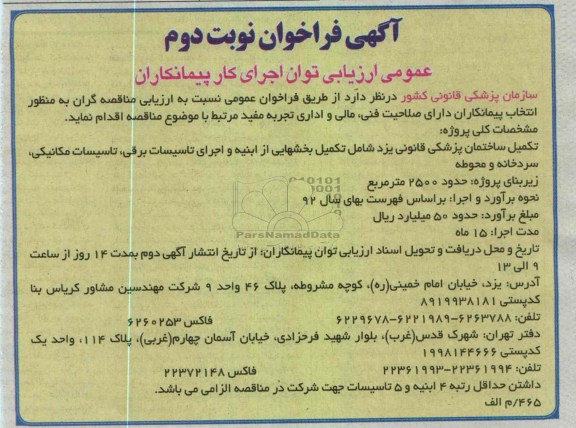 آگهی فراخوان نوبت دوم
عمومی ارزیابی توان اجرای کار پیمانکاران
سازمان پزشکی قانونی کشور درنظر دارد از طریق فراخوان عمومی نسبت به ارزیابی مناقصه گران به منظور
انتخاب پیمانکاران دارای صلاحیت فنی، مالی و اداری تجربه مفید مرتبط با موضوع مناقصه اقدام نماید.
مشخصات کلی پروژه:
تکمیل ساختمان پزشکی قانونی یزد شامل تکمیل بخشهایی از ابنیه و اجرای تاسیسات برقی، تاسیسات مکانیکی،
سردخانه و محوطه
زیربنای پروژه: حدود ۲۵۰۰ مترمربع
نحوه برآورد و اجرا: براساس فهرست بهای سال ۹۲
ParsNamadData
مبلغ برآورد: حدود ۵۰ میلیارد ریال
مدت اجرا: ۱۵ ماه
تاریخ و محل دریافت و تحویل اسناد ارزیابی توان پیمانکاران؛ از تاریخ انتشار آگهی دوم بمدت ۱۴ روز از ساعت
۹ الی ۱۳
آدرس: یزد، خیابان امام خمینی(ره)، کوچه مشروطه، پلاک ۴۶ واحد ۹ شرکت مهندسین مشاور کریاس بنا
کدپستی ۸۹۱۹۹۳۸۱۸۱
تلفن: ۶۲۶۳۷۸۸-۶۲۲۱۹۸۹-۶۲۲۹۶۷۸ فاکس ۶۲۶۰۲۵۳
دفتر تهران: شهرک قدس(غرب)، بلوار شهید فرحزادی، خیابان آسمان چهارم(غربی)، پلاک ۱۱۴، واحد یک
کدپستی ۱۹۹۸۱۴۴۶۶۶
تلفن: ۲۲۳۶۱۹۹۴-۲۲۳۶۱۹۹۳ فاکس ۲۲۳۷۲۱۴۸
داشتن حداقل رتبه ۴ ابنیه و ۵ تاسیسات جهت شرکت در مناقصه الزامی می باشد.
۴۶۵/م الف